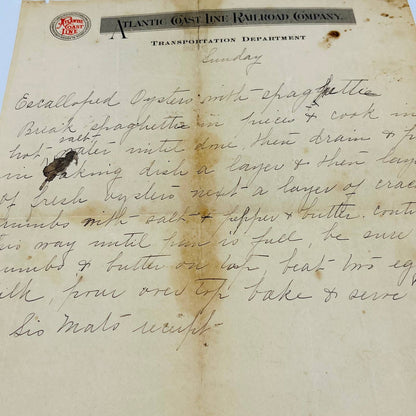 Atlantic Coast Line
Atlantic Coast Line Railroad Company.
Transportation Department
Sunday
Escalloped Oysters with spaghettie
Break spaghettie in pieces & cook in
hot salt water until done then drain & p
in baking dish a layer & then lay
of fresh oysters next a layer of crac
crumbs with salt & pepper & butter. cont
his way until pan is full, be sure
umbs & butter on top, beat two eg
ilk, pour over top bake & serve
Sis Mat's receipt